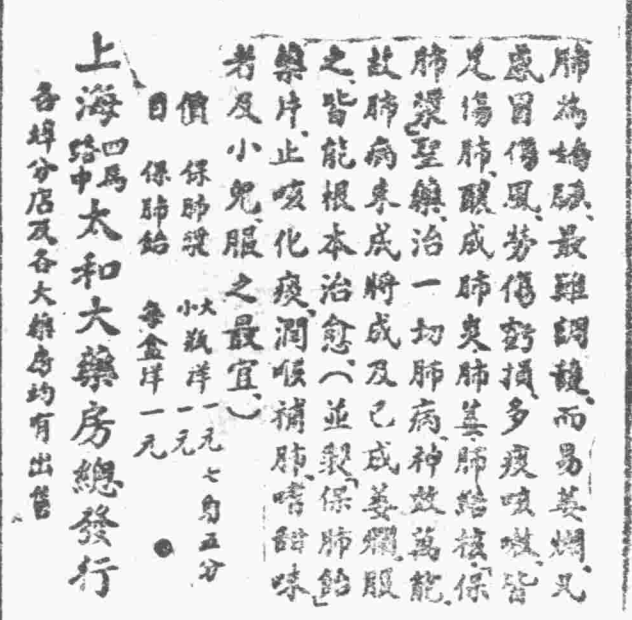 肺為嬌臟、最難調護、而易萎爛、凡
感冒傷風、勞傷虧損、多痰咳嗽、皆
足傷肺、釀成肺炎、肺萎、肺結核、「保
肺漿」聖藥、治一切肺病、神效萬能、
故肺病未成將成及已成萎爛、服
之、皆能根本治愈、（並製「保肺飴」
藥片、止咳化痰、潤喉補肺、嗜甜味
者及小兒、服之最宜、）
價 保肺漿 大瓶洋一元七角五分 小瓶洋一元
目 保肺飴 每盒洋一元
上海四馬路中太和大藥房總發行
各埠分店及各大藥房均有出售